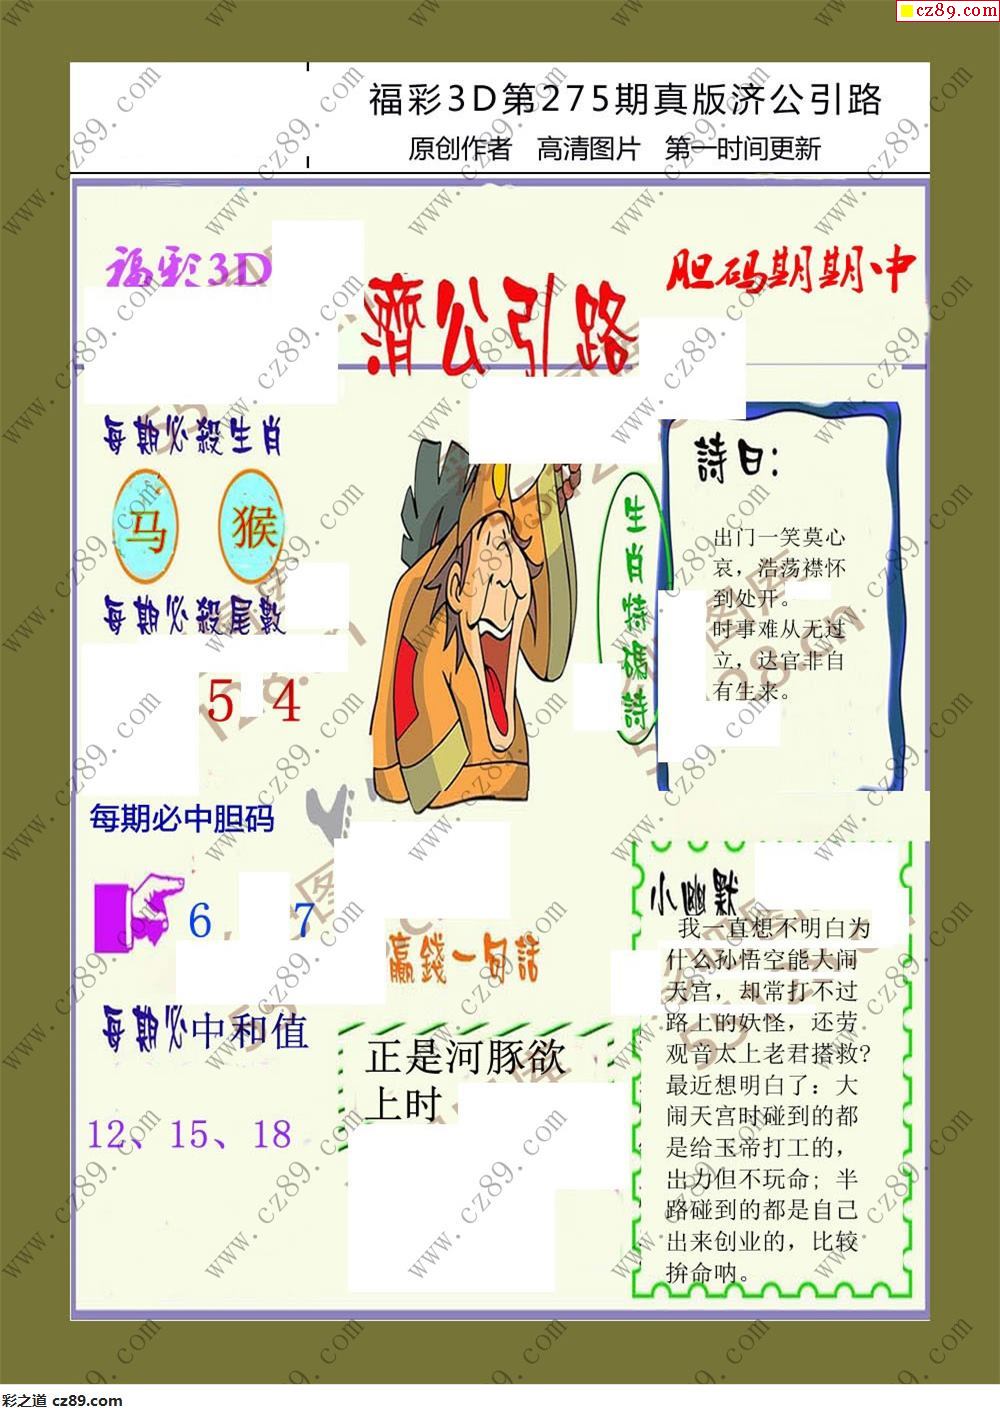 cz89.com
福彩3D第275期真版济公引路
原创作者 高清图片 第一时间更新
福彩3D
濟公引路
胆码期期中
每期必殺生肖
马 猴
每期必殺尾數
5 4
每期必中胆码
6 7
每期必中和值
12、15、18
生肖特碼詩
詩曰：
出门一笑莫心
哀，浩荡襟怀
到处开。
时事难从无过
立，达官非自
有生来。
赢錢一句話
正是河豚欲
上时
小幽默
我一直想不明白为
什么孙悟空能大闹
天宫，却常打不过
路上的妖怪，还劳
观音太上老君搭救?
最近想明白了：大
闹天宫时碰到的都
是给玉帝打工的，
出力但不玩命；半
路碰到的都是自己
出来创业的，比较
拚命呐。
www.cz89.com
彩之道 cz89.com